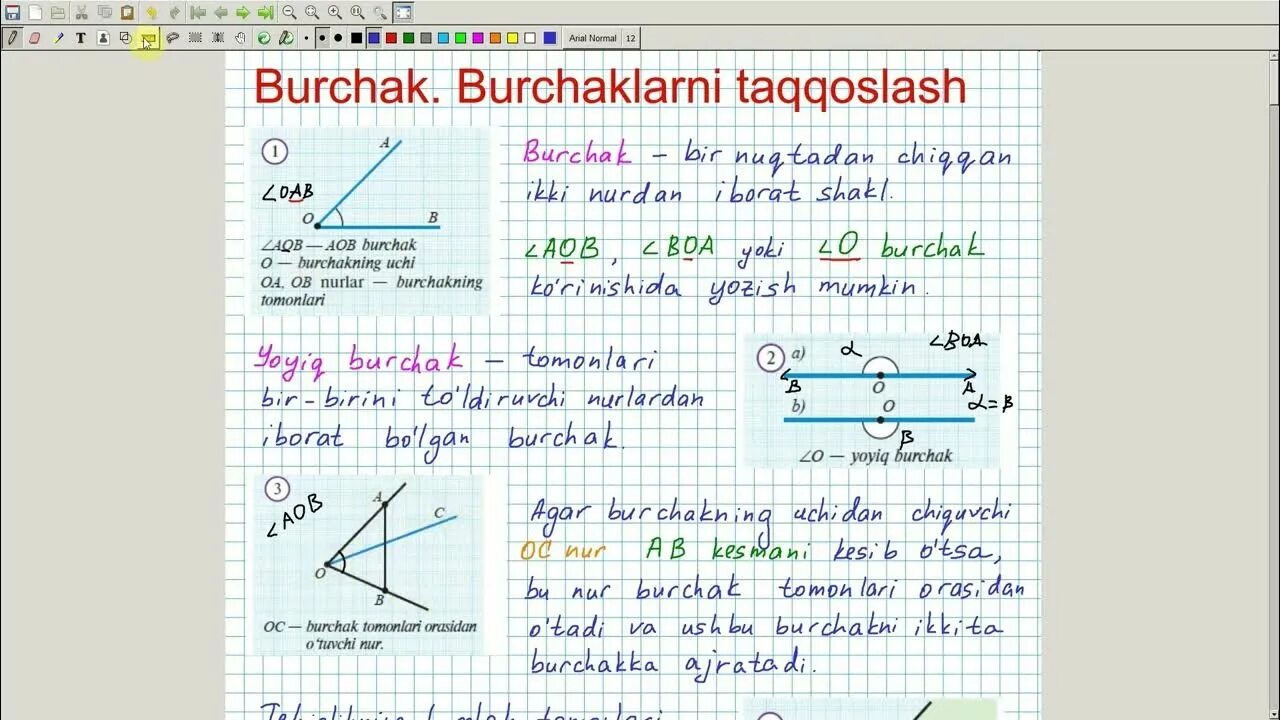 Arial Normal 12
Burchak. Burchaklarni taqqoslash
1
A
∠OAB
O
B
∠AOB — AOB burchak
O — burchakning uchi
OA, OB nurlar — burchakning
tomonlari
Burchak – bir nuqtadan chiqqan
ikki nurdan iborat shakl.
∠AOB, ∠BOA yoki ∠O burchak
ko'rinishida yozish mumkin.
Yoyiq burchak – tomonlari
bir-birini to'ldiruvchi nurlardan
iborat bo'lgan burchak.
2 a) α ∠BOA
B O A
b) O α=β
β
∠O — yoyiq burchak
3
∠AOB
A
C
O
B
OC — burchak tomonlari orasidan
o'tuvchi nur.
Agar burchakning uchidan chiquvchi
OC nur AB kesmani kesib o'tsa,
bu nur burchak tomonlari orasidan
o'tadi va ushbu burchakni ikkita
burchakka ajratadi.